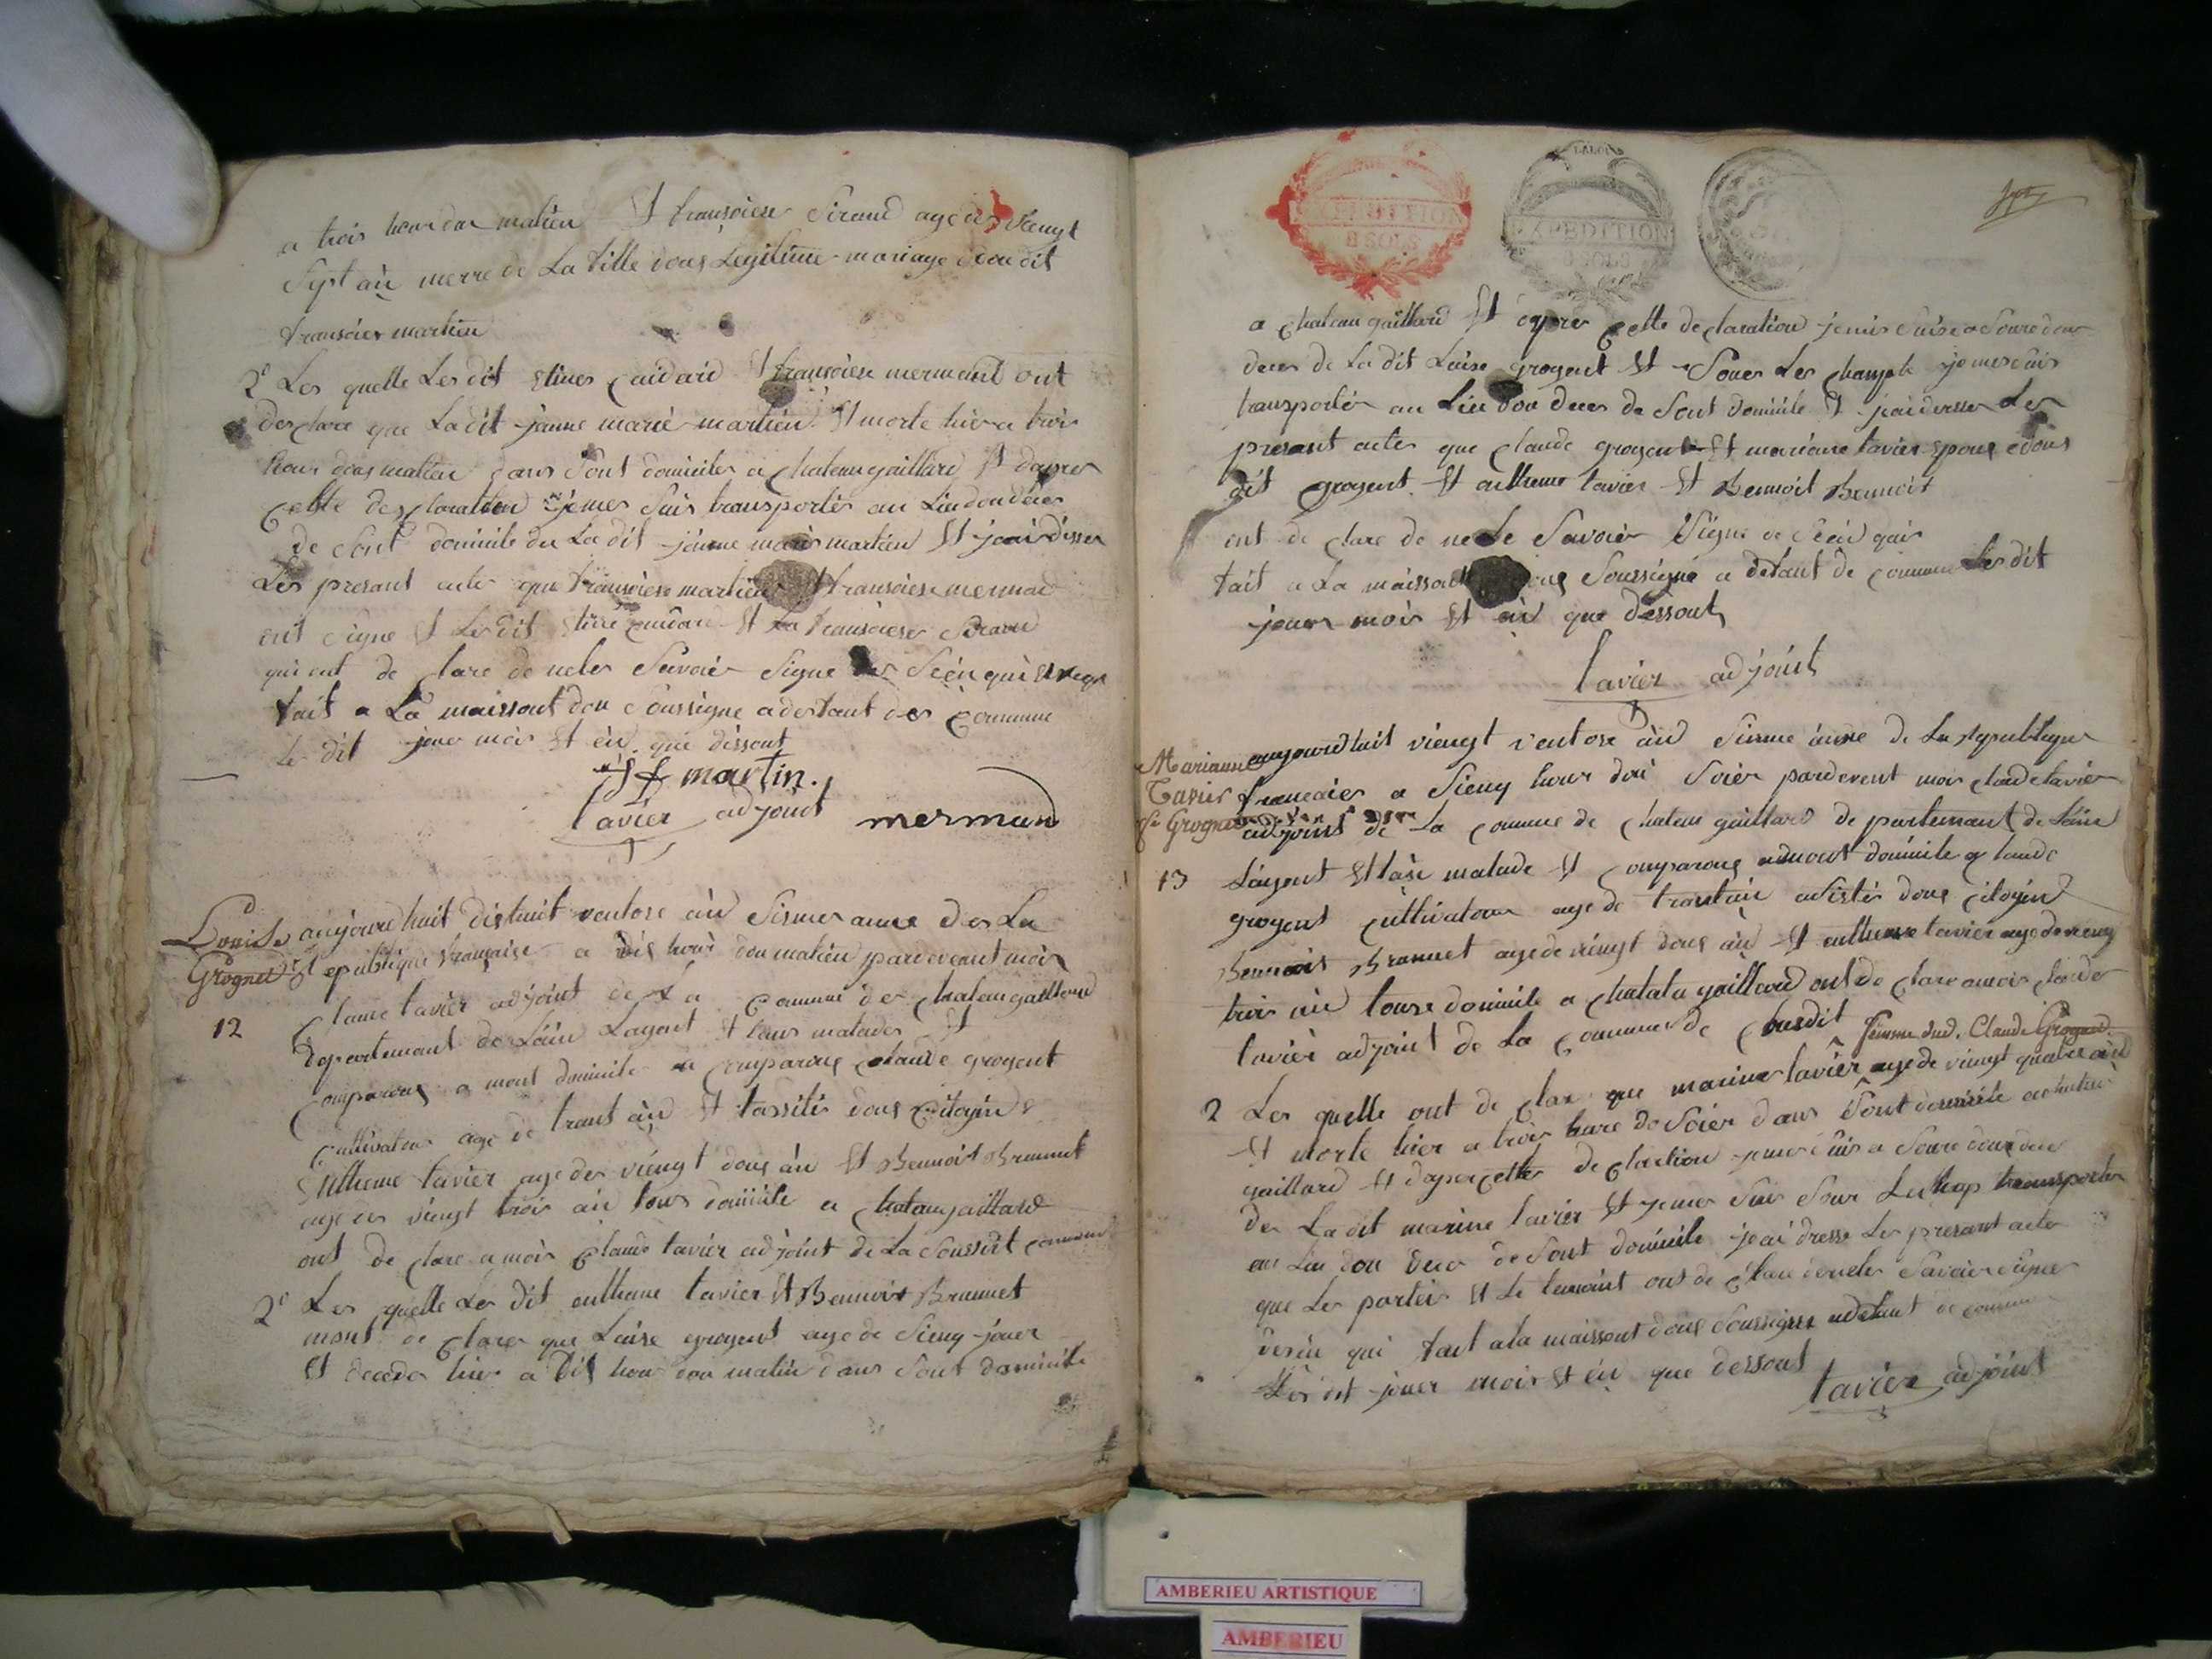 a trois heur dou matien Et fransoiese Siraud age des viengt
Sept an merre de La fille dous Legitime mariage dou dit
fransoies martien
2e Les quelle Les dit caidard Et fransoiese mermant ont
des clare que La dit janne marie martien Et morte hier a trois
heur dous matien dans Sont domicile a chateau gaillard Et dapres
Cette des claration je mes Suis transportes au Lieu dou deces
de Sont domicile du La dit janne marie martien Et jeai disser
Les presant actes que fransoies martien Et fransoiese mermand
ont Signe Et Les dit caidard Et La fransoiese Siraud
qui ont de clare de neles Savoir Signe
fait a La maissont dou Soussigne a desfaut des Commune
Le dit jour mois Et an que dessout
f martin.
tavier adjoint mermand
Louise
Grognet
12
aujourdhuit dishuit ventose an Sisme anne des La
Republique Française a dis heur dou matien pardevant moi
Claude tavier adjoint de La Commune de chateau gaillard
departemant de Lain Lagent Et tans malades Et
comparous a mont domicile comparous claude grogent
Cultivateur age de trant an Et tassites dous citoyins
Entheme tavier age des viengt dous an Et Bennoit Brunnet
age des viengt trois an tous domicile a chateaugaillard
ont de clare a moi Claude tavier adjoint de La Soussdit commune
2e Les quelle Les dit entheme tavier Et Bennoit Brunnet
mont de clares que Luise grogent age de Sieng jouer
Et decedes hier a dis heur dou matin dans Sont domicile
EXPEDITION
8 SOLS
EXPEDITION
8 SOLS
a chateau gaillard Et apres Cette declaration je mes Suis a Soure dou
deces de La dit Luise grogent Et Les champt je mes Suis
transportes au Lieu dou deces de Sont domicile Et jeai dresser Les
presant actes que claude grogent Et mariane tavier epous dous
dit grogent Et antheme tavier Et Bennoit Bennoit
ont de clare de ne Le Savoir Signe
fait a La maissont dous Soussigne a defaut de commune Les dit
jouer mois Et an que dessout
tavier adjoint
Marianne
Tavier
fe Grognet
13
aujourdhuit viengt ventose an Sisme anne de La Republique
francaies a Sieng heur dou Soier pardevent moi claude tavier
adjoint de La Commune de chateau gaillard departemant de Lain
Lagent Et tans malade Et comparous a mont domicile claude
grogent cultivateur age de trant an asistes dous citoyins
Bennoit Brunnet age de viengt dous an Et antheme tavier age de vieng
trois an touse domicile a chatala gaillard ont de clare a moi claude
tavier adjoint de La Commune de Susdit
femme dud. Claude Grogned
2 Les quelle ont de clare que marine tavier age de viengt quatre an
Et morte hier a trois heure do Soier dans Sont domicile a chateau
gaillard Et daper cettes de claration je mes Suis a Soure dous deces
des La dit marine tavier Et je mes Suis Sour Les champ transportes
au Lieu dou deces de Sont domicile jeai dresse Les presant actes
que Les parties Et Le temoint ont de clare de neles Savoir signer
qui fait a la maissont dous Soussigne adefaut de commune
Les dit jouer mois Et an que dessout
tavier adjoint
AMBERIEU ARTISTIQUE
AMBERIEU